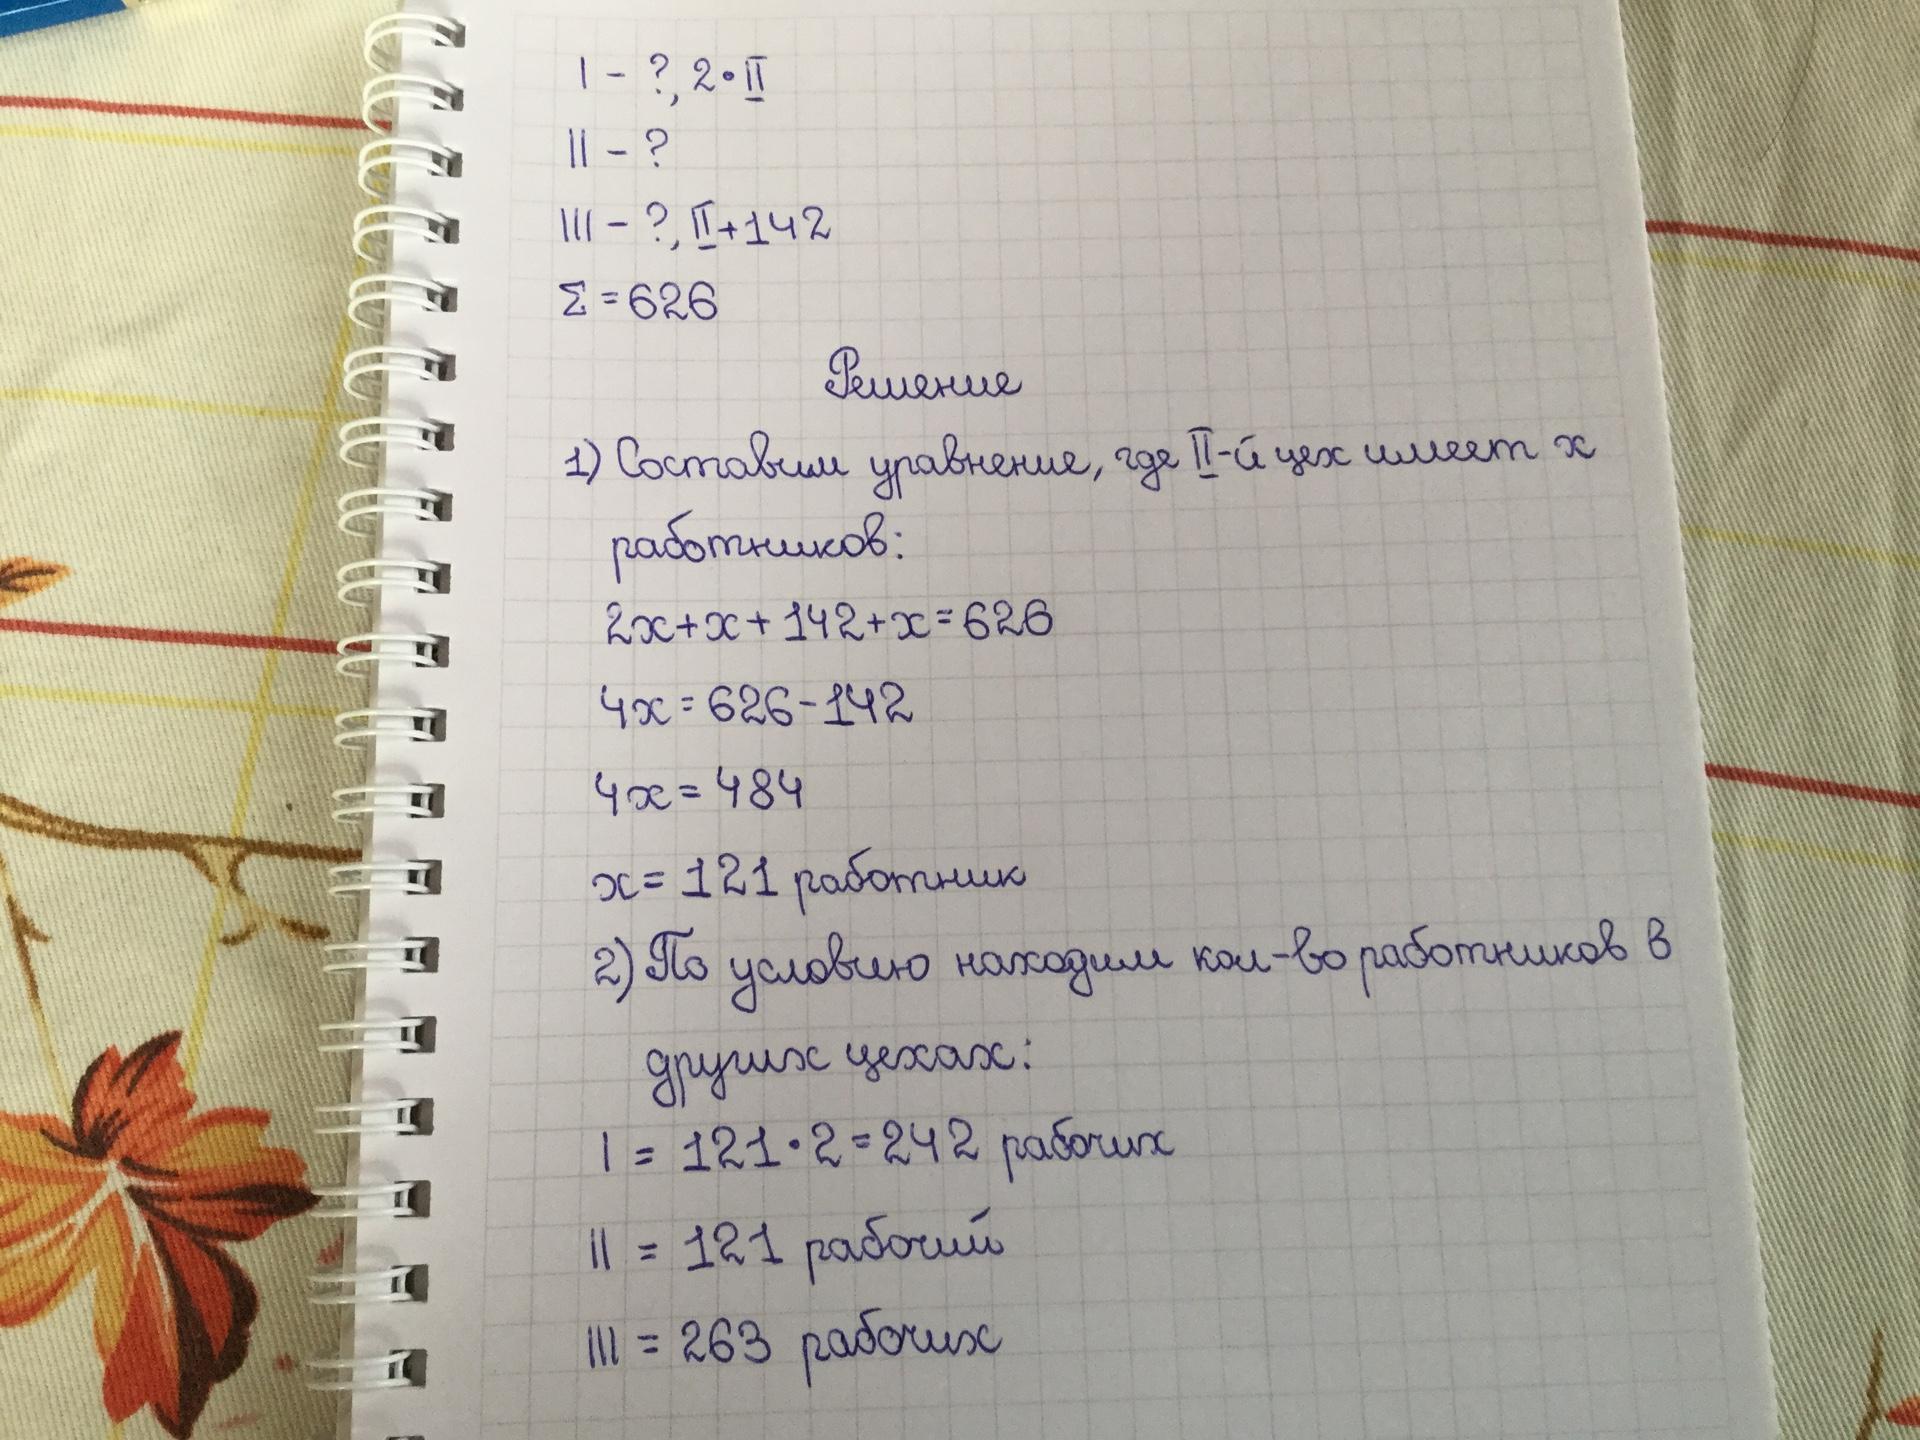 I - ?, 2•II
II - ?
III - ?, II+142
Σ = 626
Решение
1) Составим уравнение, где II-й цех имеет x
работников:
2x+x+142+x=626
4x=626-142
4x=484
x=121 работник
2) По условию находим кол-во работников в
других цехах:
I = 121•2=242 рабочих
II = 121 рабочий
III = 263 рабочих